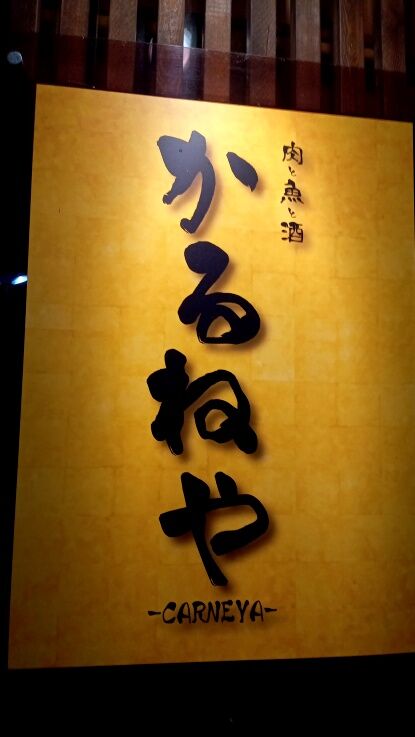 肉と魚と酒
かるねや
-CARNEYA-